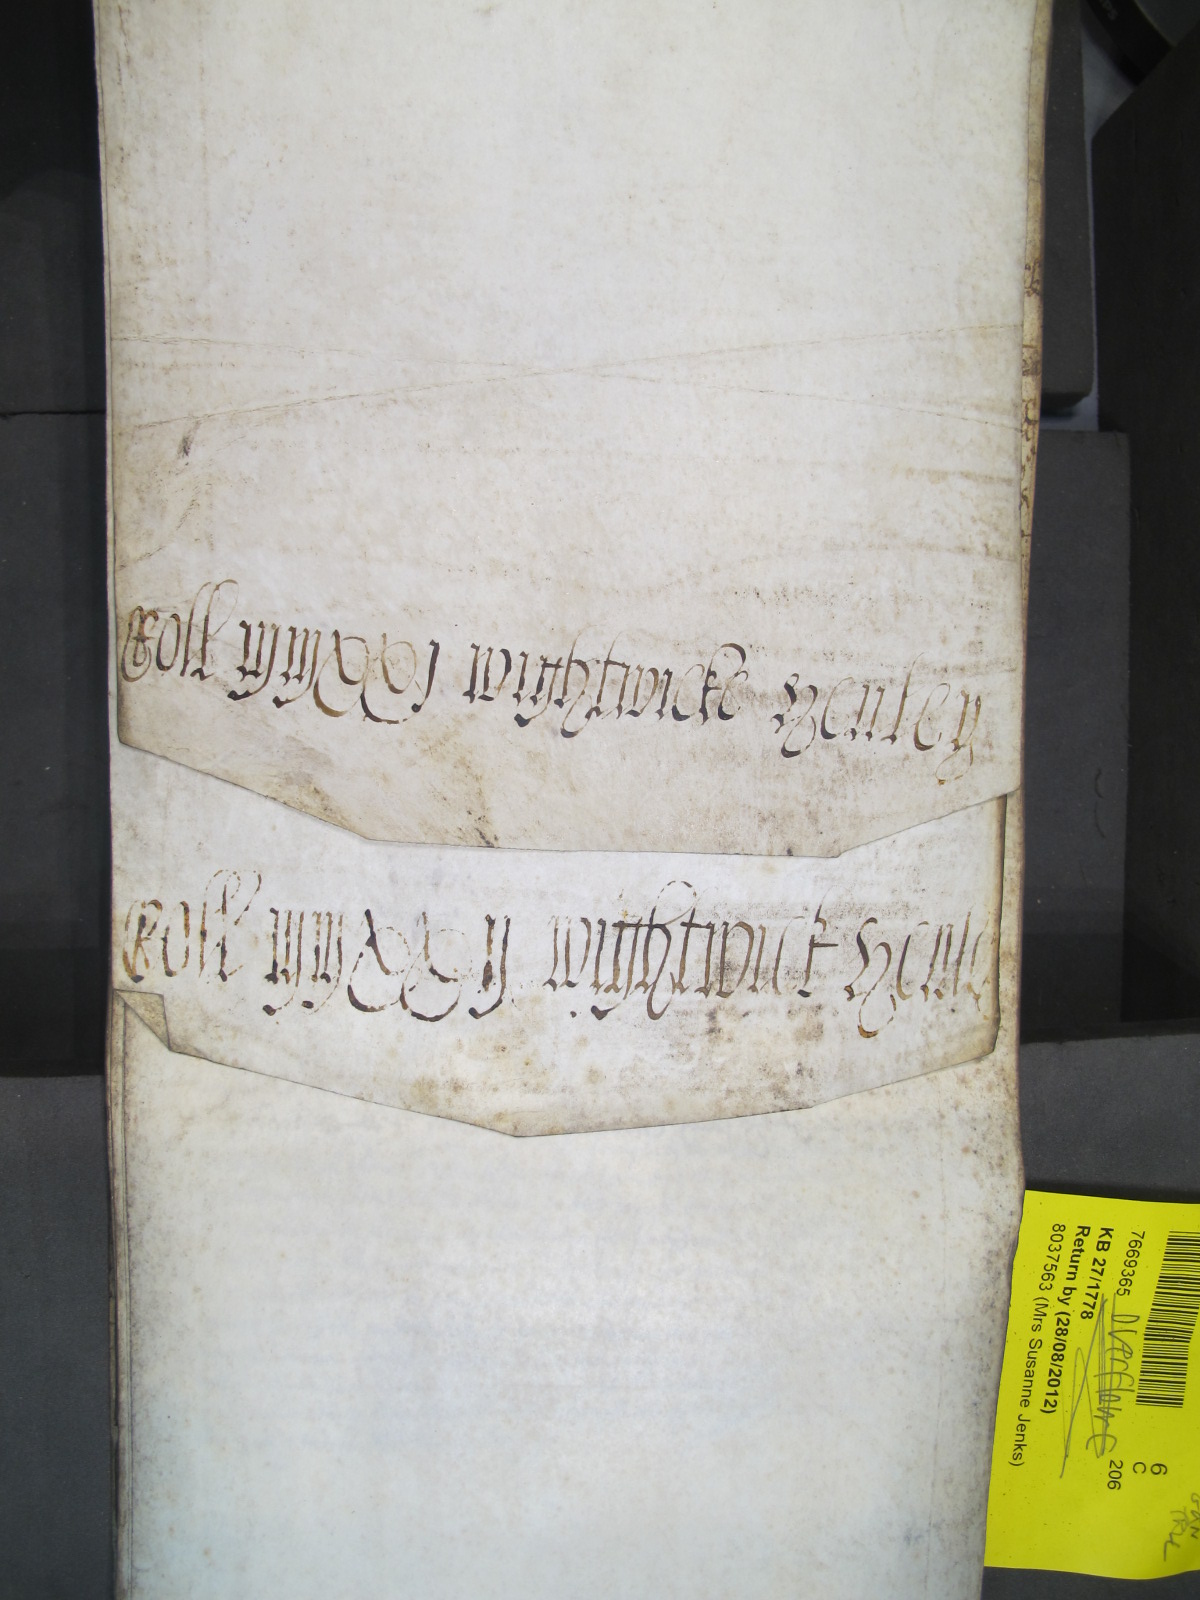 Roll mmxxj Wightwicke Henley
Roll mmxxij Wightwick Henle
7669365
KB 27/1778
Return by (28/08/2012)
8037563 (Mrs Susanne Jenks)
6
C
206